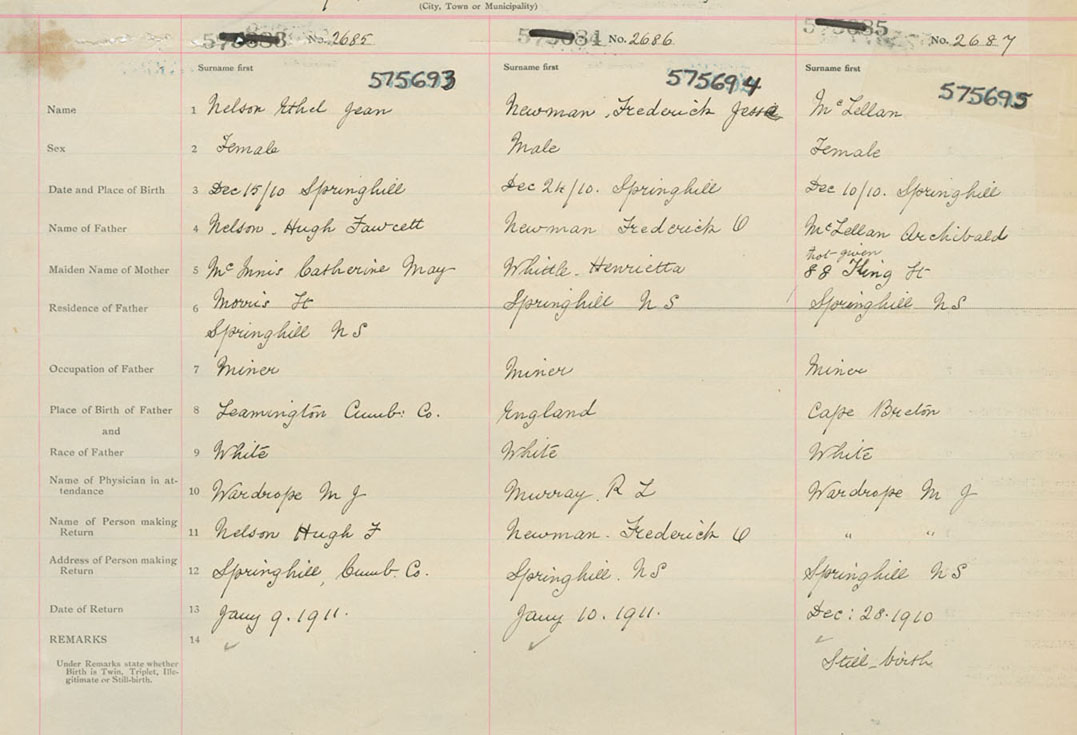 (City, Town or Municipality)
No. 2685 No. 2686 No. 2687
Surname first Surname first Surname first
575693 575694 575695
Name 1 Nelson Ethel Jean Newman, Frederick Jesse McLellan
Sex 2 Female Male Female
Date and Place of Birth 3 Dec 15/10 Springhill Dec 24/10. Springhill Dec 10/10. Springhill
Name of Father 4 Nelson, Hugh Fawcett Newman Frederick O McLellan Archibald
not given
Maiden Name of Mother 5 McInnis Catherine May Whittle, Henrietta 88 King St
Residence of Father 6 Morris St Springhill N S Springhill N S
Springhill N S
Occupation of Father 7 Miner Miner Miner
Place of Birth of Father 8 Leamington Cumb: Co. England Cape Breton
and
Race of Father 9 White White White
Name of Physician in at-
tendance 10 Wardrope M J Murray R L Wardrope M J
Name of Person making
Return 11 Nelson Hugh F Newman. Frederick O " "
Address of Person making
Return 12 Springhill, Cumb. Co. Springhill. N S Springhill N S
Date of Return 13 Jany 9. 1911. Jany 10. 1911. Dec: 28. 1910
REMARKS 14
Still-birth
Under Remarks state whether
Birth is Twin, Triplet, Ille-
gitimate or Still-birth.